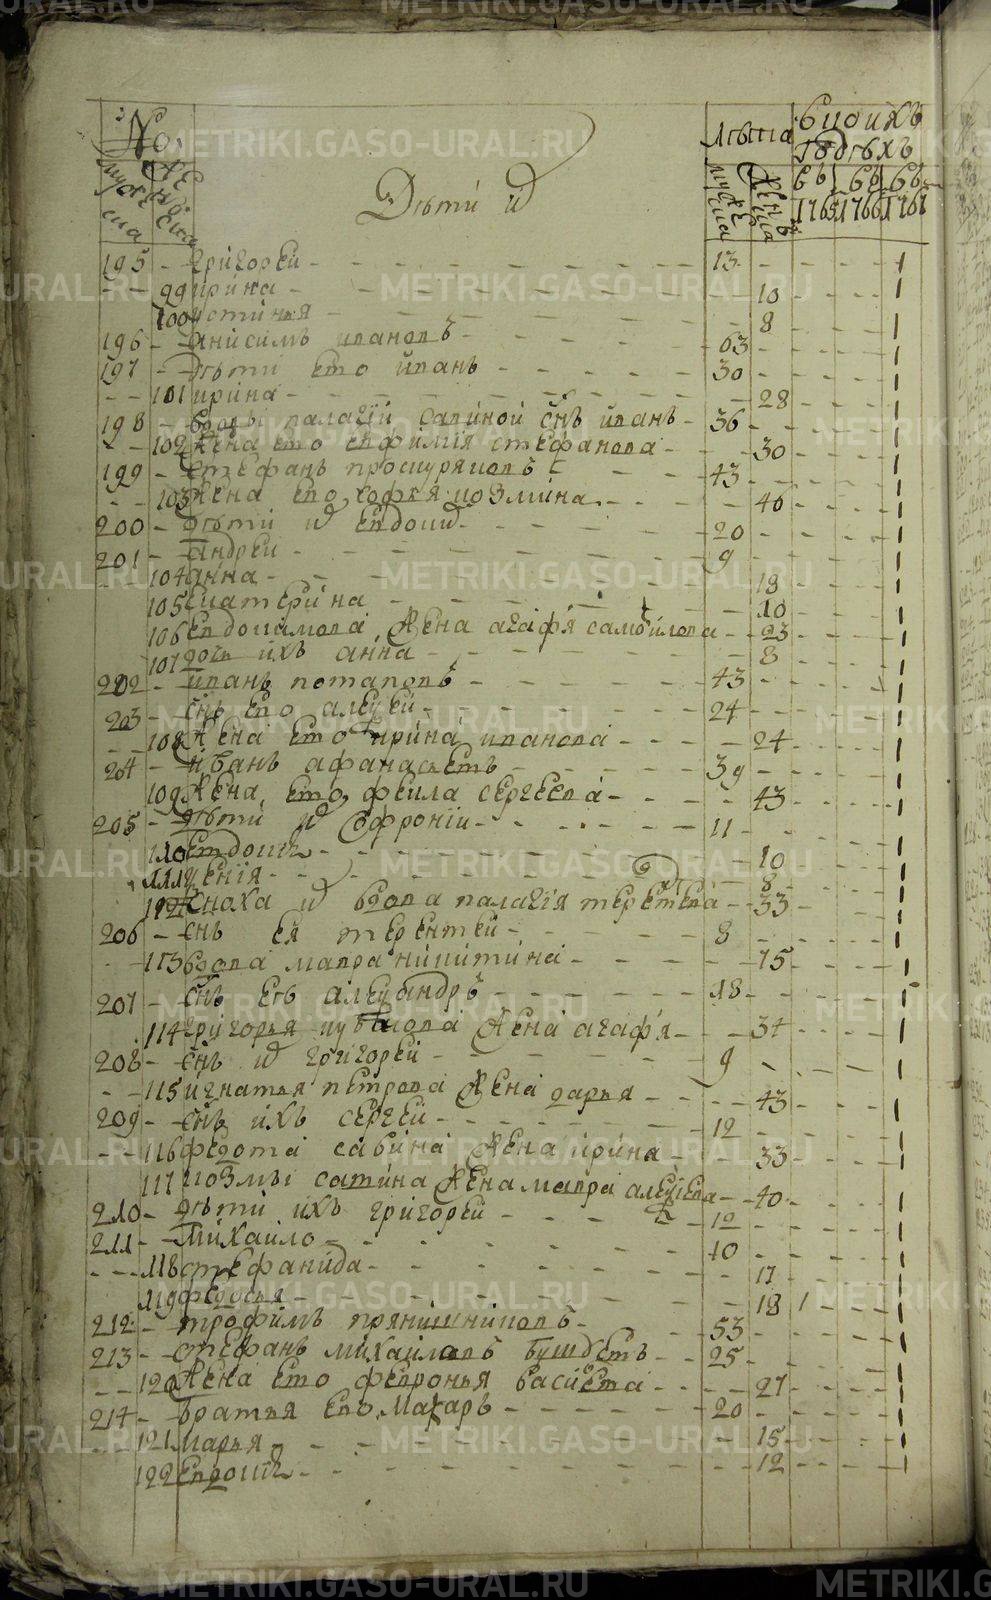 METRIKI.GASO-URAL.RU
No.
мужеска
женска
Дѣти ихъ
лѣта
мужеска
женска
в коихъ
годѣхъ
въ въ въ
1765 1766 1767
195 григореи 13
99 ирина 10
100 устинья 8
196 анисимъ ивановъ 63
197 дѣти его иванъ 30
101 ирина 28
198 вдовы палагїи савиной снъ иванъ 36
102 жена его евфимїя стефанова 30
199 стефанъ проскуряковъ 43
103 жена его софья козмина 40
200 дѣти их евдоким 20
201 андреи 9
104 анна 18
105 екатерина 10
106 евдокимова жена агафя самоилова 23
107 дочь ихъ анна 8
202 иванъ потаповъ 43
203 снъ его алеѯеи 24
108 жена его ирина иванова 24
204 иванъ афанасьевъ 39
109 жена его фекла сергеева 43
205 дѣти их софронїи 11
110 евдокия 10
111 ѯенїя 8
112 сноха их вдова палагїя терентева 33
206 снъ ея терентеи 8
113 вдова мавра никитина 75
207 снъ ев алеѯандръ 18
114 григорья жена агафя 34
208 снъ их григореи 9
115 игнатья петрова жена дарья 43
209 снъ ихъ сергеи 12
116 федота савина жена ирина 33
117 козмы сатина жена мавра алеѯиева 40
210 дѣти ихъ григореи 12
211 михаило 10
118 стефанида 17
119 федосья 18
212 трофимъ прянишниковъ 53
213 стефанъ михаиловъ 25
120 жена его февронья васильева 27
214 братья его макаръ 20
121 марья 15
122 евдокия 12